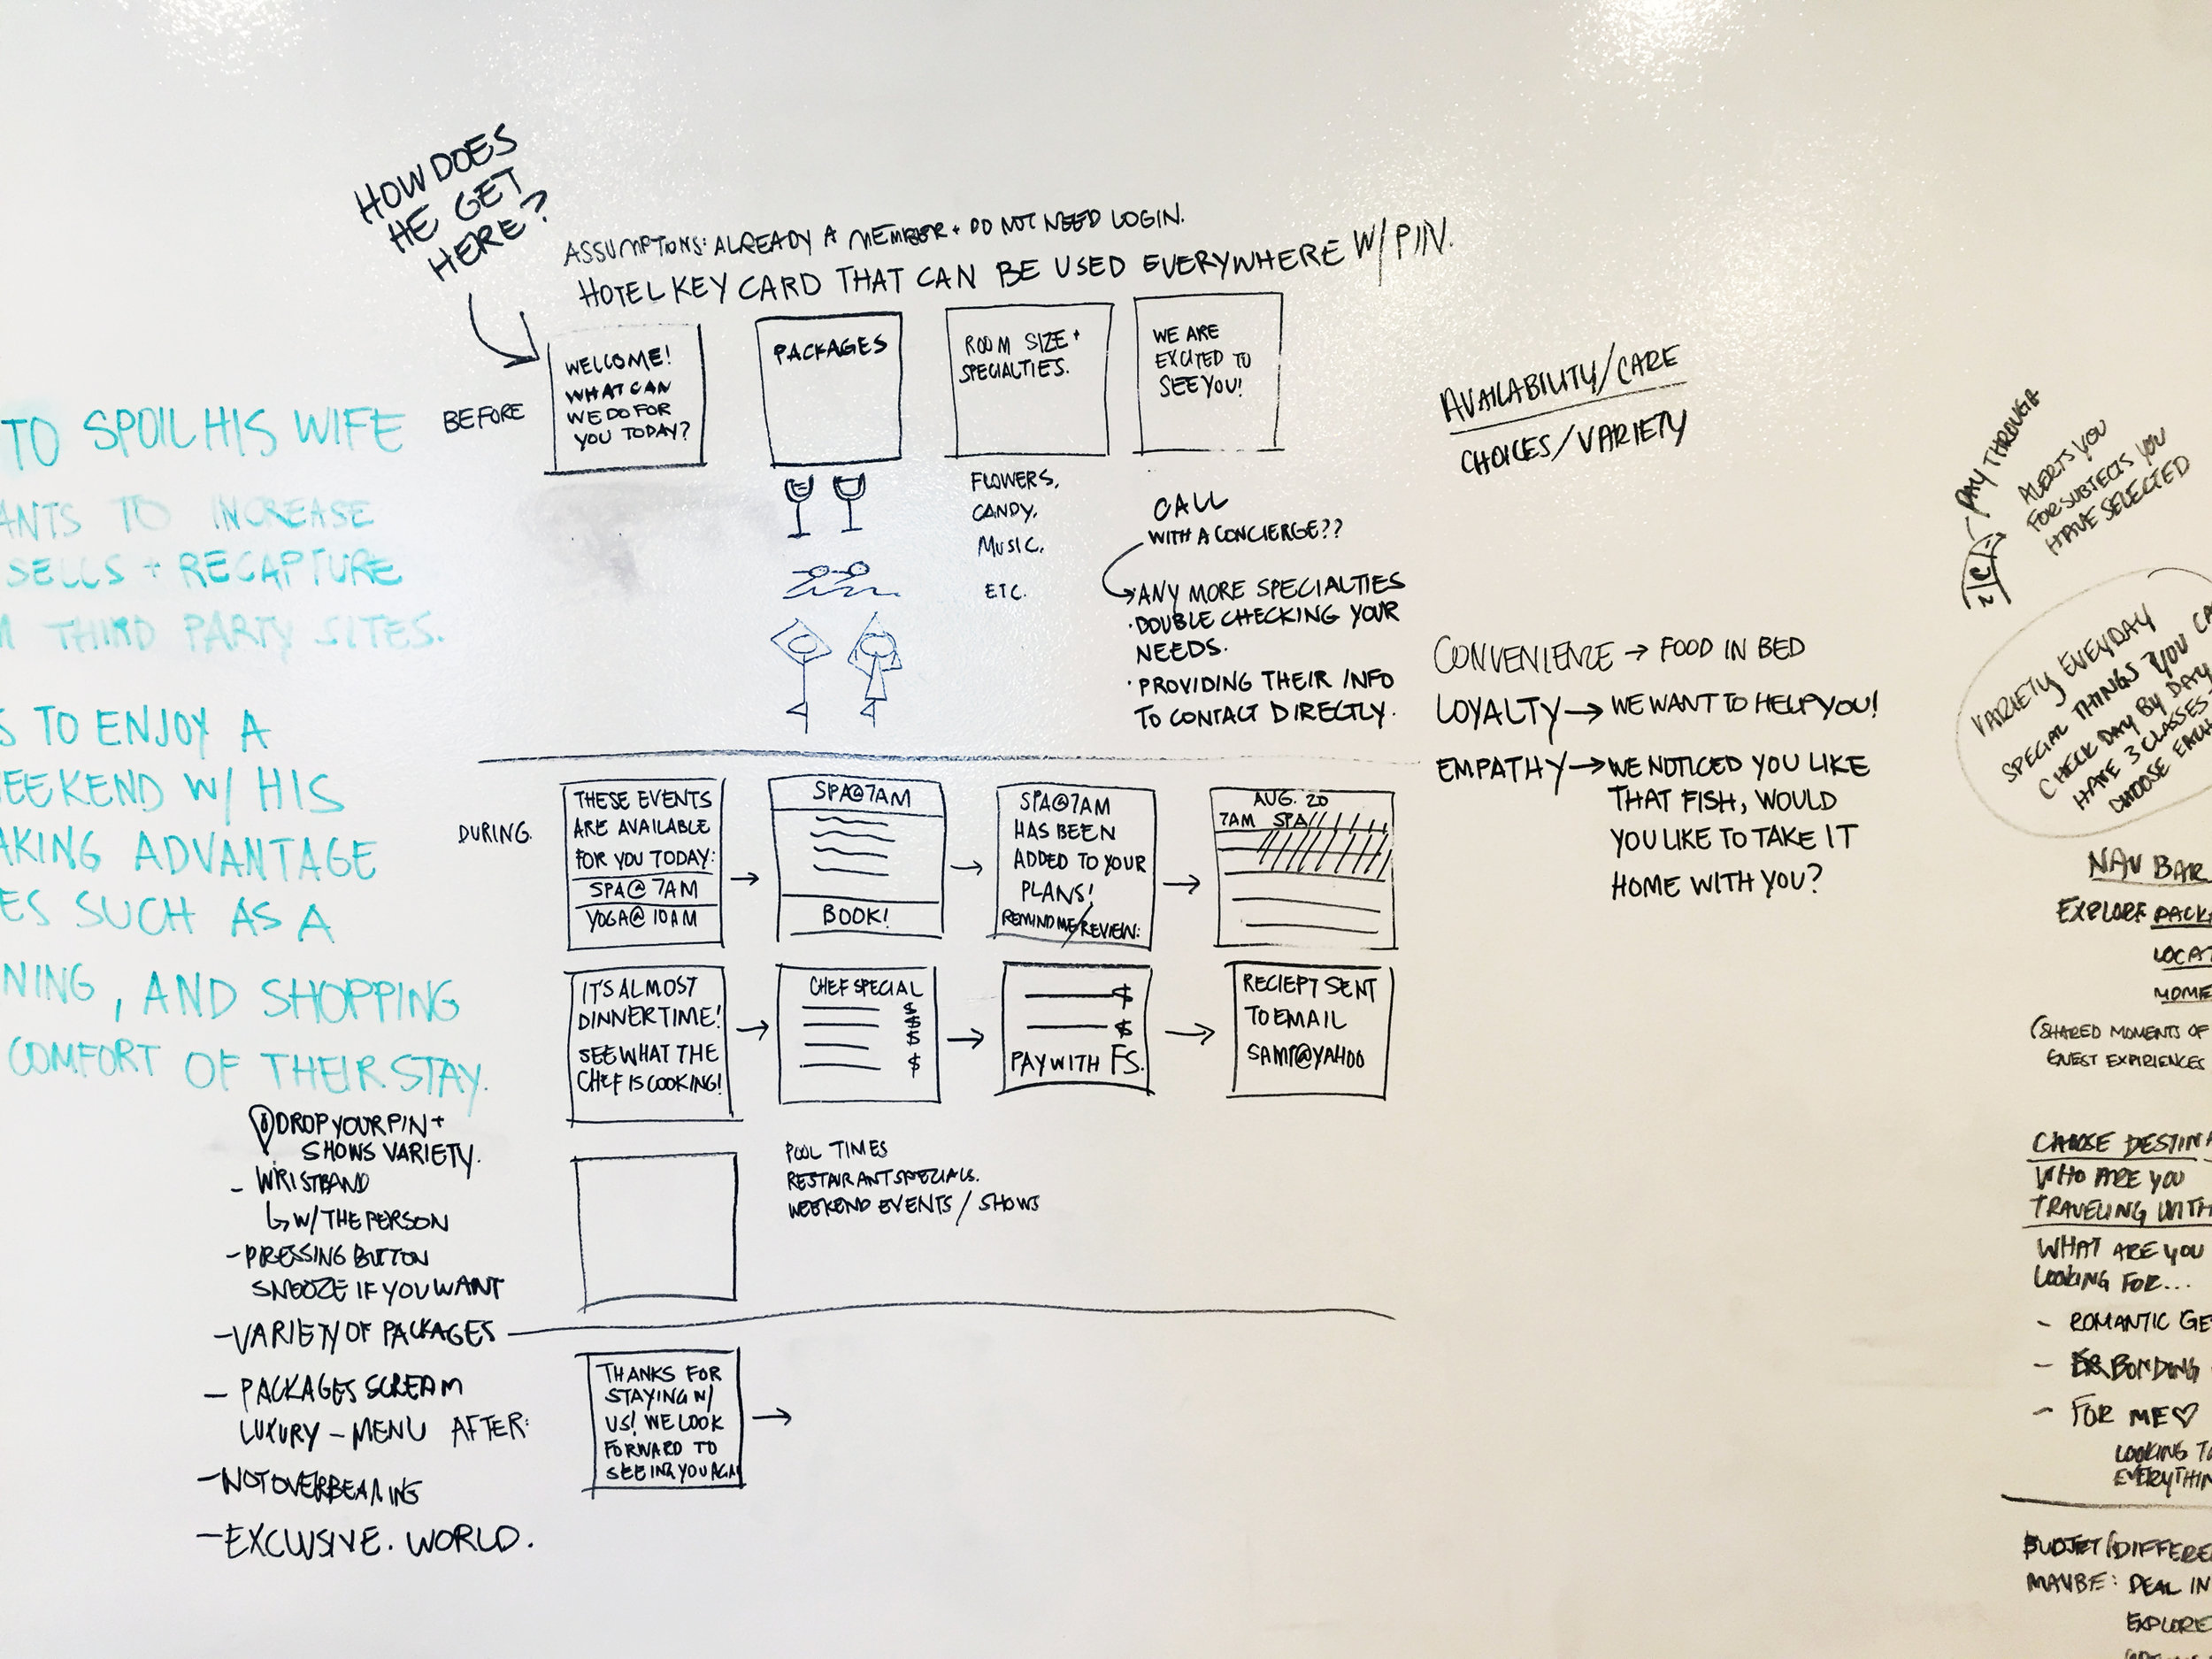 HOW DOES
HE GET
HERE?
ASSUMPTIONS: ALREADY A MEMBER + DO NOT NEED LOGIN.
HOTEL KEY CARD THAT CAN BE USED EVERYWHERE W/ PIN.
BEFORE
WELCOME!
WHAT CAN
WE DO FOR
YOU TODAY?
PACKAGES
ROOM SIZE +
SPECIALTIES.
WE ARE
EXCITED TO
SEE YOU!
FLOWERS,
CANDY,
MUSIC,
ETC.
CALL
WITH A CONCIERGE??
ANY MORE SPECIALTIES
· DOUBLE CHECKING YOUR
NEEDS.
· PROVIDING THEIR INFO
TO CONTACT DIRECTLY.
AVAILABILITY/CARE
CHOICES/VARIETY
CONVENIENCE → FOOD IN BED
LOYALTY → WE WANT TO HELP YOU!
EMPATHY → WE NOTICED YOU LIKE
THAT FISH, WOULD
YOU LIKE TO TAKE IT
HOME WITH YOU?
TO SPOIL HIS WIFE
ANTS TO INCREASE
SELLS + RECAPTURE
THIRD PARTY SITES.
S TO ENJOY A
EEKEND W/ HIS
AKING ADVANTAGE
ES SUCH AS A
NING, AND SHOPPING
COMFORT OF THEIR STAY.
DURING.
THESE EVENTS
ARE AVAILABLE
FOR YOU TODAY:
SPA @ 7AM
YOGA @ 10AM
SPA@7AM
BOOK!
SPA@7AM
HAS BEEN
ADDED TO YOUR
PLANS!
REMIND ME/REVIEW:
AUG. 20
7AM SPA
IT'S ALMOST
DINNERTIME!
SEE WHAT THE
CHEF IS COOKING!
CHEF SPECIAL
$
$
$
$
$
$
PAY WITH FS.
RECIEPT SENT
TO EMAIL
SAMI@YAHOO
POOL TIMES
RESTAIRANT SPECIALS.
WEEKEND EVENTS / SHOWS
DROP YOUR PIN +
SHOWS VARIETY.
- WRISTBAND
W/ THE PERSON
- PRESSING BUTTON
SNOOZE IF YOU WANT
- VARIETY OF PACKAGES
- PACKAGES SCREAM
LUXURY - MENU
- NOT OVERBEARING
- EXCLUSIVE. WORLD.
AFTER:
THANKS FOR
STAYING W/
US! WE LOOK
FORWARD TO
SEEING YOU AGA
PAY THROUGH
ALERTS YOU
FOR SUBJECTS YOU
HAVE SELECTED
VARIETY EVEYDAY
SPECIAL THINGS YOU CA
CHECK DAY BY DAY
HAVE 3 CLASSES
CHOOSE EACH
NAV BAR
EXPLORE PACKA
LOCAT
MOME
(SHARED MOMENTS OF
GUEST EXPIRIENCES
CHOOSE DESTINA
WHO ARE YOU
TRAVELING WITH
WHAT ARE YOU
LOOKING FOR...
- ROMANTIC GE
- BONDING
- FOR ME ♡
LOOKING T
EVERYTHIN
BUDJET (DIFFERE
MAYBE: DEAL IN
EXPLORE